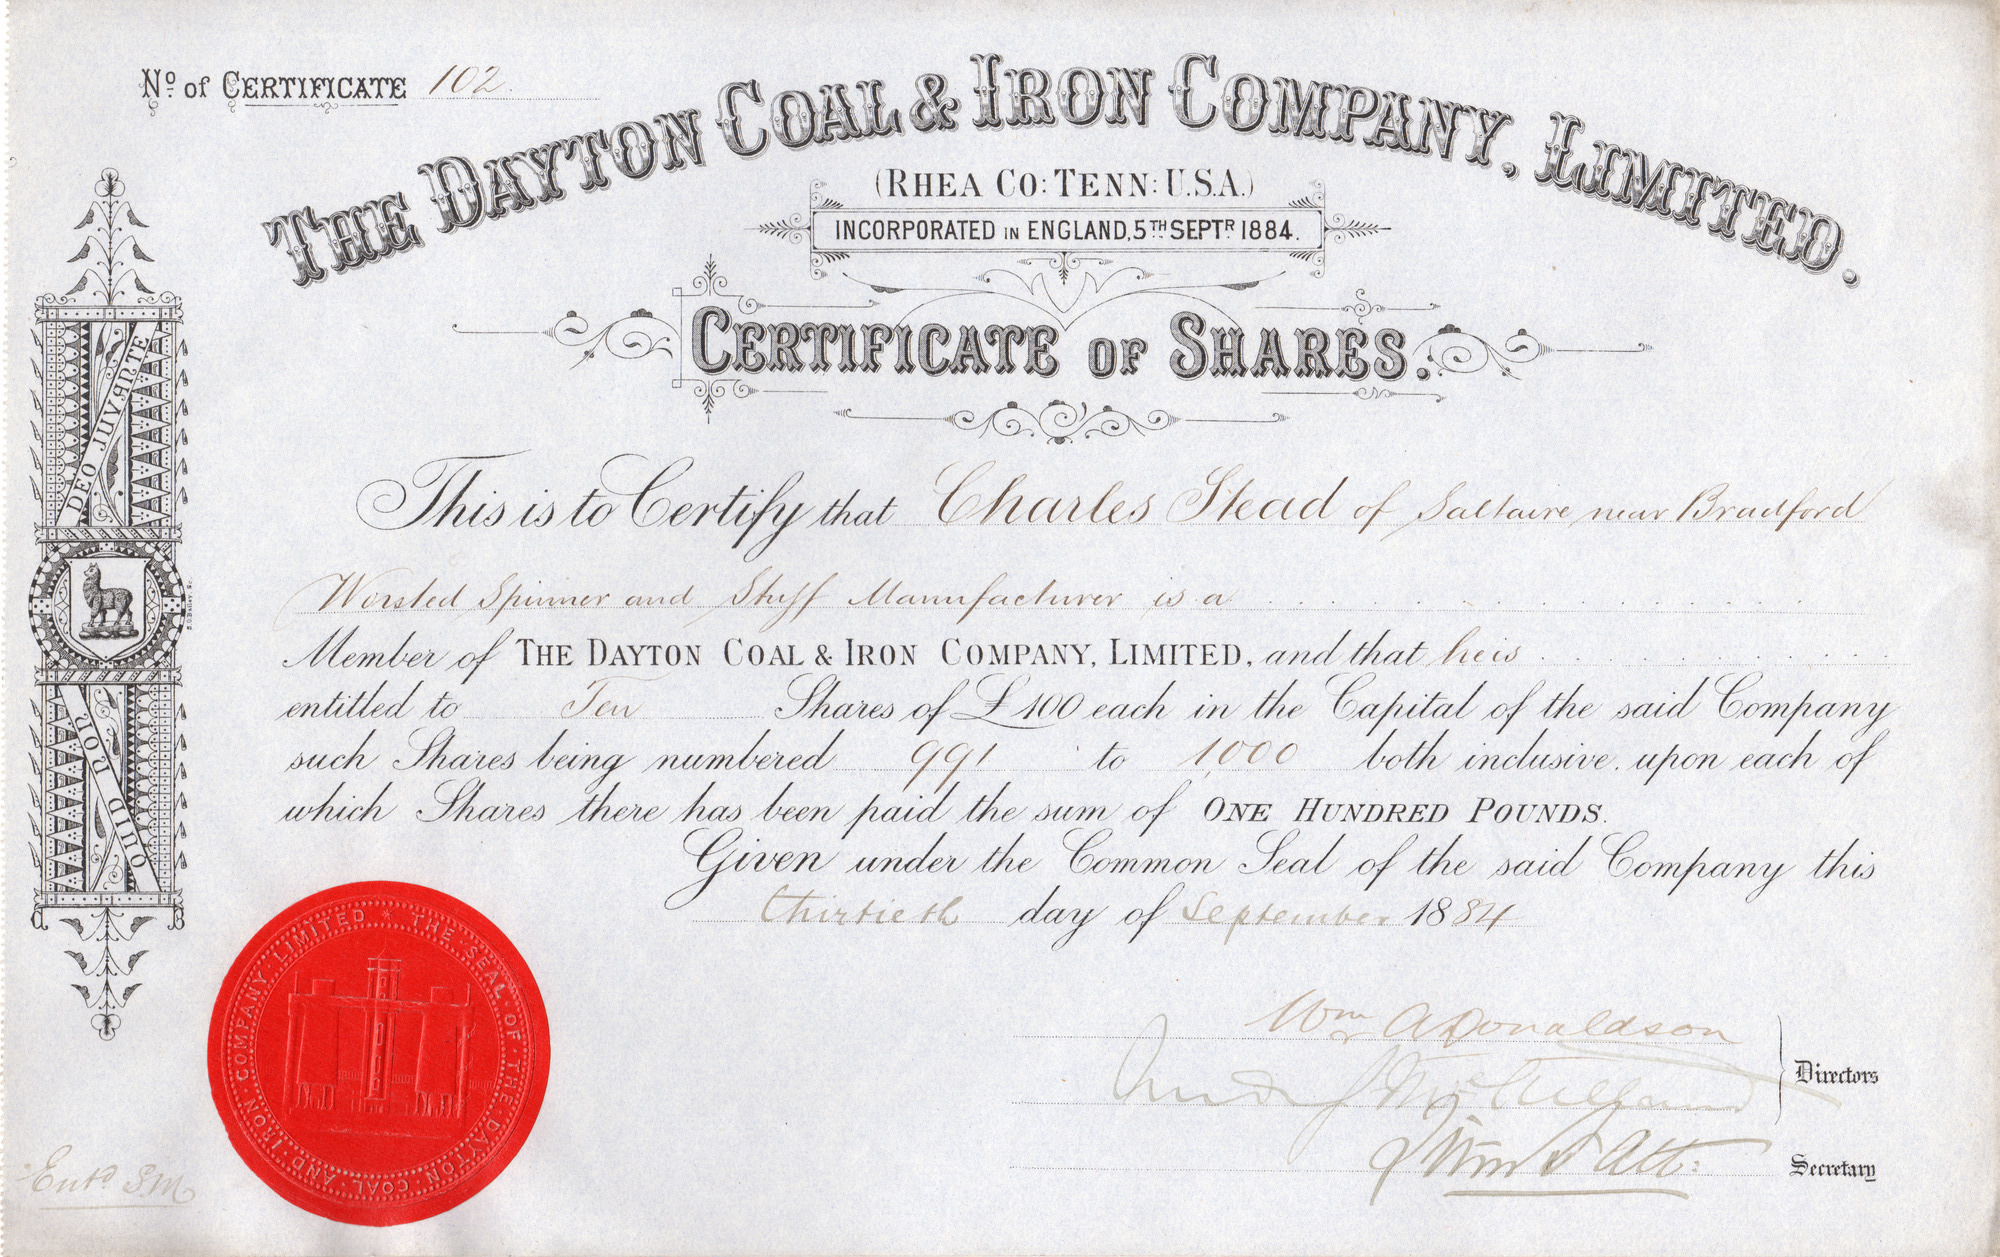 No. of CERTIFICATE 102.
THE DAYTON COAL & IRON COMPANY, LIMITED.
(RHEA CO: TENN: U.S.A.)
INCORPORATED IN ENGLAND, 5TH SEPTR 1884.
CERTIFICATE OF SHARES.
DEO JUVANTE
QUID NON
This is to Certify that Charles Stead of Saltaire near Bradford
Worsted Spinner and Stuff Manufacturer is a
Member of THE DAYTON COAL & IRON COMPANY, LIMITED, and that he is
entitled to Ten Shares of £100 each in the Capital of the said Company
such Shares being numbered 991 to 1,000 both inclusive, upon each of
which Shares there has been paid the sum of ONE HUNDRED POUNDS.
Given under the Common Seal of the said Company this
Thirtieth day of September 1884
THE · SEAL · OF · THE · DAYTON · COAL · AND · IRON · COMPANY · LIMITED
Wm A Donaldson
Directors
Secretary
Entd S.M